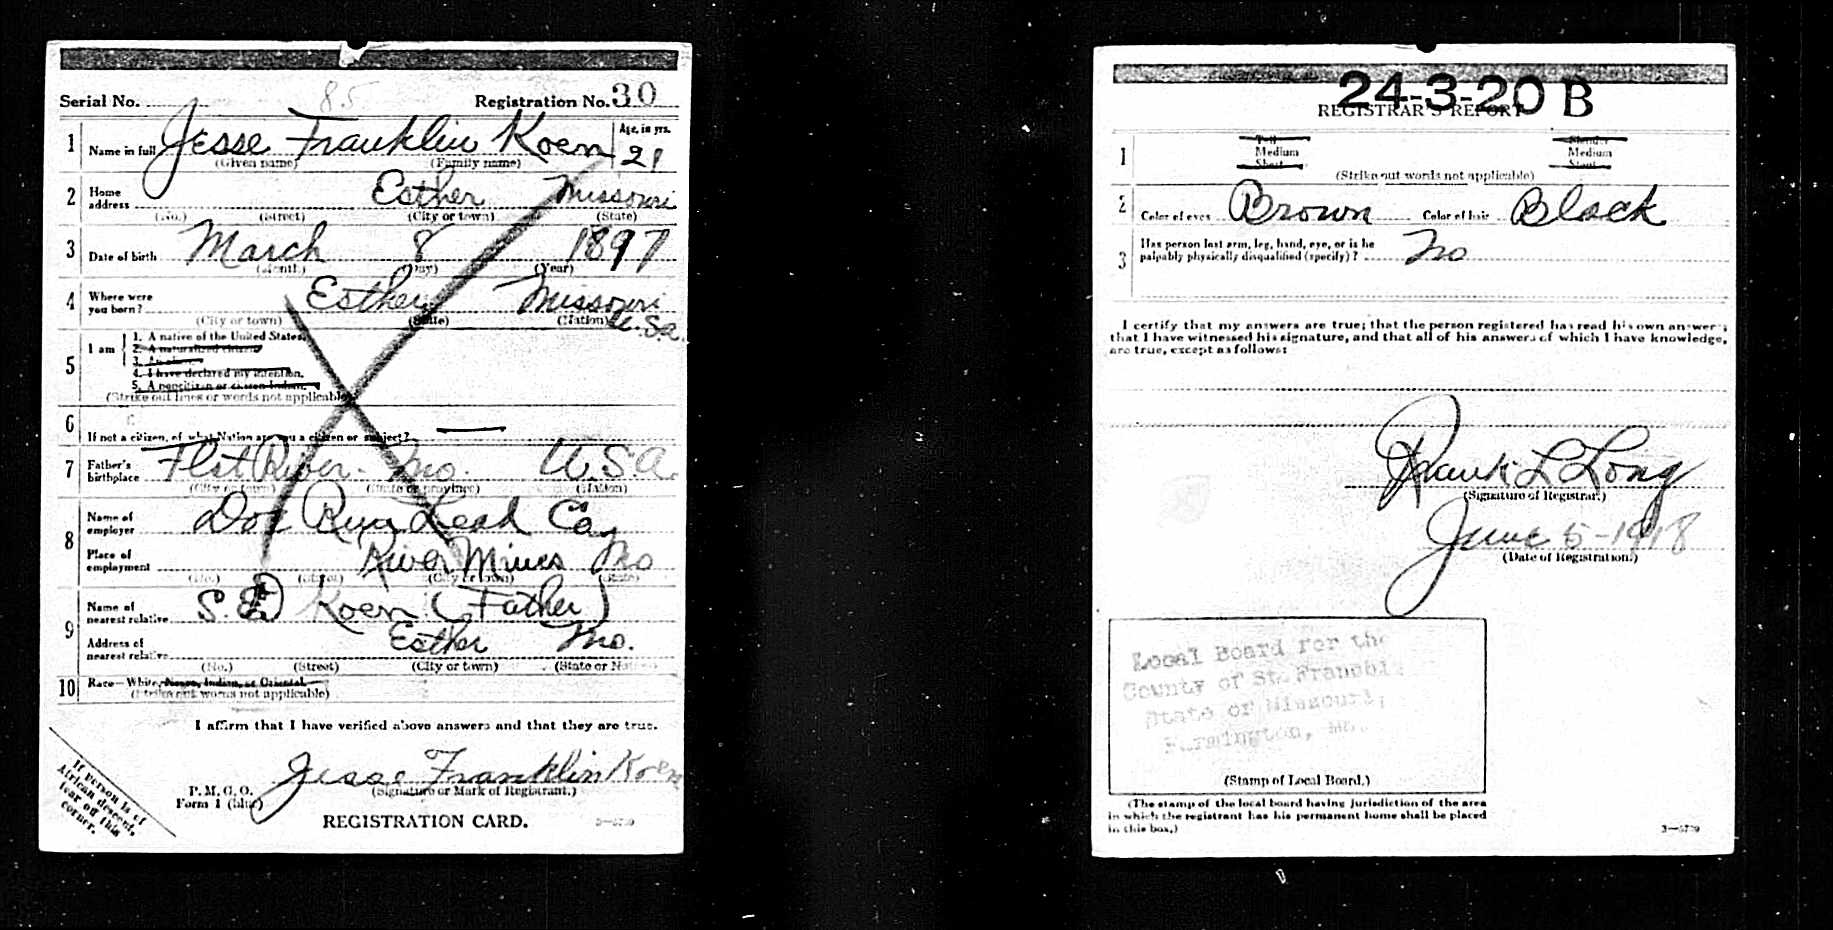 Serial No. 85 Registration No. 30
1 Name in full Jesse Franklin Koen Age, in yrs. 21
(Given name) (Family name)
2 Home address Esther Missouri
(No.) (Street) (City or town) (State)
3 Date of birth March 8 1897
(Month) (Day) (Year)
4 Where were you born? Esther Missouri U.S.a.
(City or town) (State) (Nation)
5 I am
1. A native of the United States.
2. A naturalized citizen
3. An alien
4. I have declared my intention.
5. A noncitizen or citizen Indian.
(Strike out lines or words not applicable)
6 If not a citizen, of what Nation are you a citizen or subject?
7 Father's birthplace Flat River Mo. U.S.a.
(City or town) (State or province) (Nation)
8 Name of employer Doe Run Lead Co.
Place of employment River Mines Mo
(No.) (Street) (City or town) (State)
9 Name of nearest relative S. E. Koen (Father)
Address of nearest relative Esther Mo.
(No.) (Street) (City or town) (State or Nation)
10 Race—White, Negro, Indian, or Oriental
(Strike out words not applicable)
I affirm that I have verified above answers and that they are true.
Jesse Franklin Koen
P. M. G. O.
Form 1 (blue)
(Signature or Mark of Registrant.)
REGISTRATION CARD.
If person is of
African descent,
tear off this
corner.
24-3-20 B
REGISTRAR'S REPORT
1 Tall Slender
Medium Medium
Short Stout
(Strike out words not applicable)
2 Color of eyes Brown Color of hair Black
3 Has person lost arm, leg, hand, eye, or is he
palpably physically disqualified (specify)? No
I certify that my answers are true; that the person registered has read his own answers;
that I have witnessed his signature, and that all of his answers of which I have knowledge,
are true, except as follows:
Frank L Long
(Signature of Registrar.)
June 5-1918
(Date of Registration.)
Local Board for the
County of St. Francois
State of Missouri,
Farmington, Mo.
(Stamp of Local Board.)
(The stamp of the local board having jurisdiction of the area
in which the registrant has his permanent home shall be placed
in this box.)